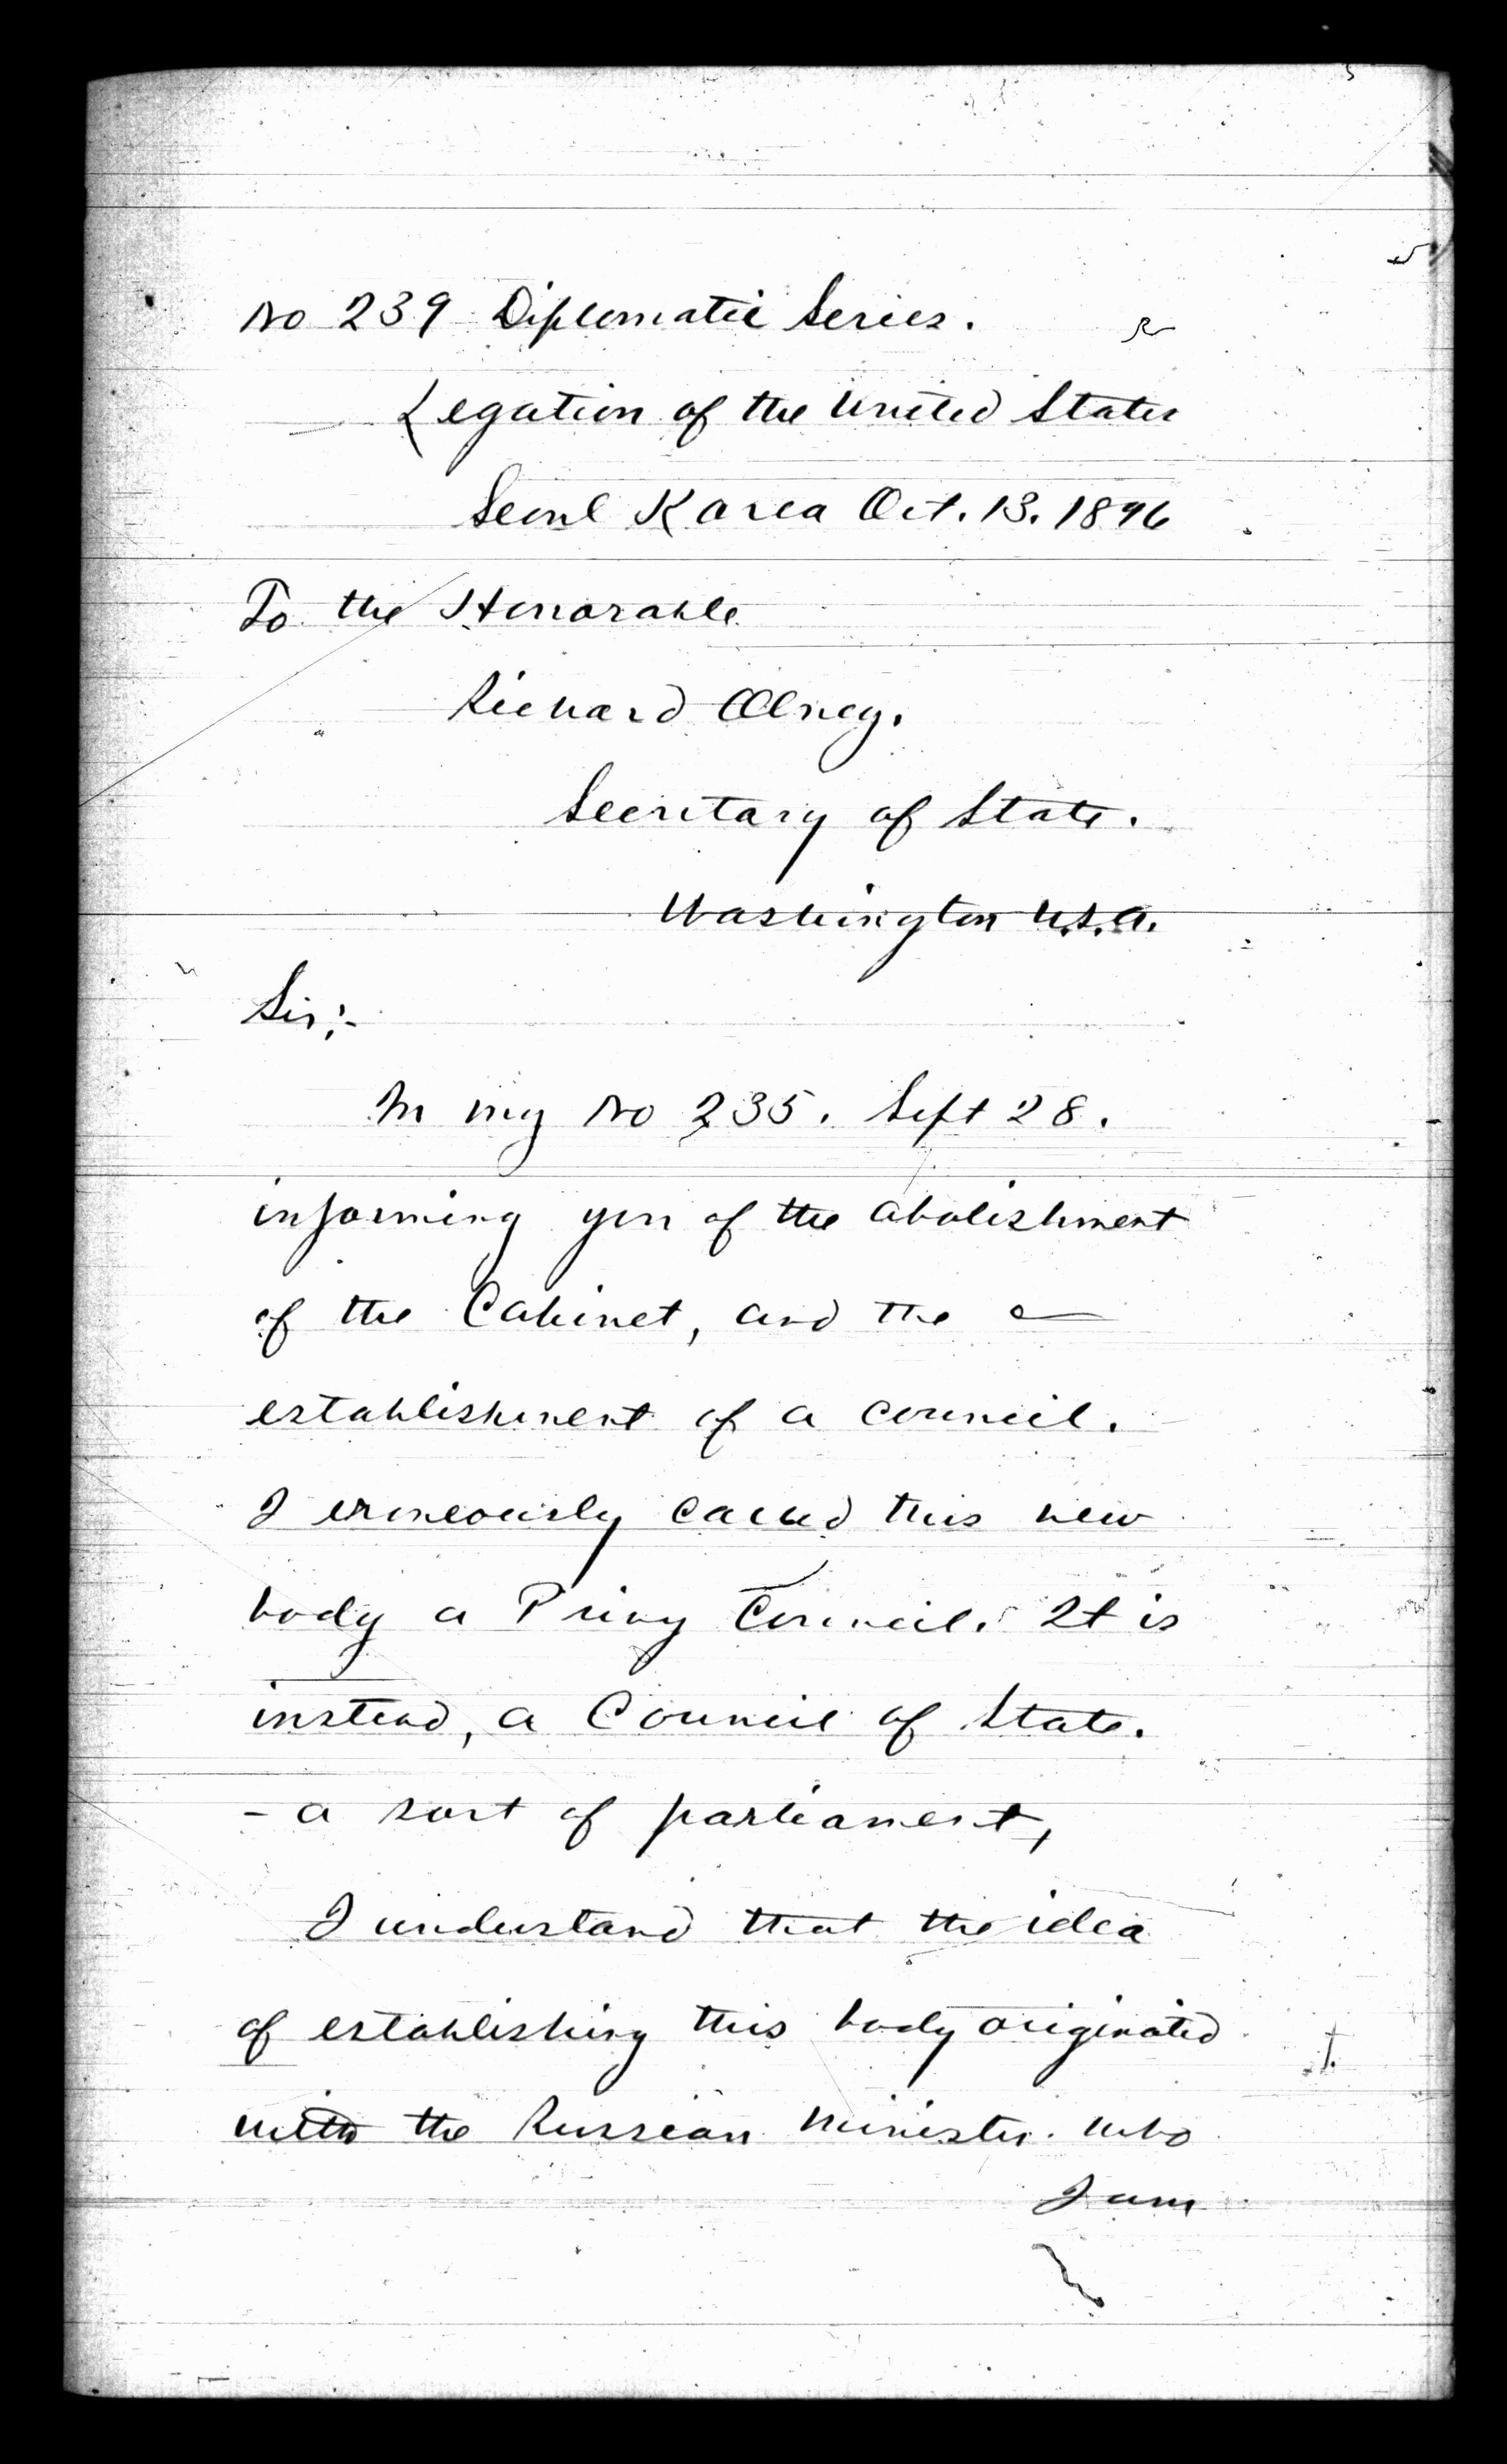 No 239 Diplomatic Series.
Legation of the United States
Seoul Korea Oct. 13. 1896
To the Honorable
Richard Olney.
Secretary of State.
Washington U.S.A.
Sir:-
In my No 235. Sept 28.
informing you of the abolishment
of the Cabinet, and the
establishment of a council.
I erroneously called this new
body a Privy Council. It is
instead, a Council of State.
- a sort of parliament,
I understand that the idea
of establishing this body originated
with the Russian Minister. who
I am